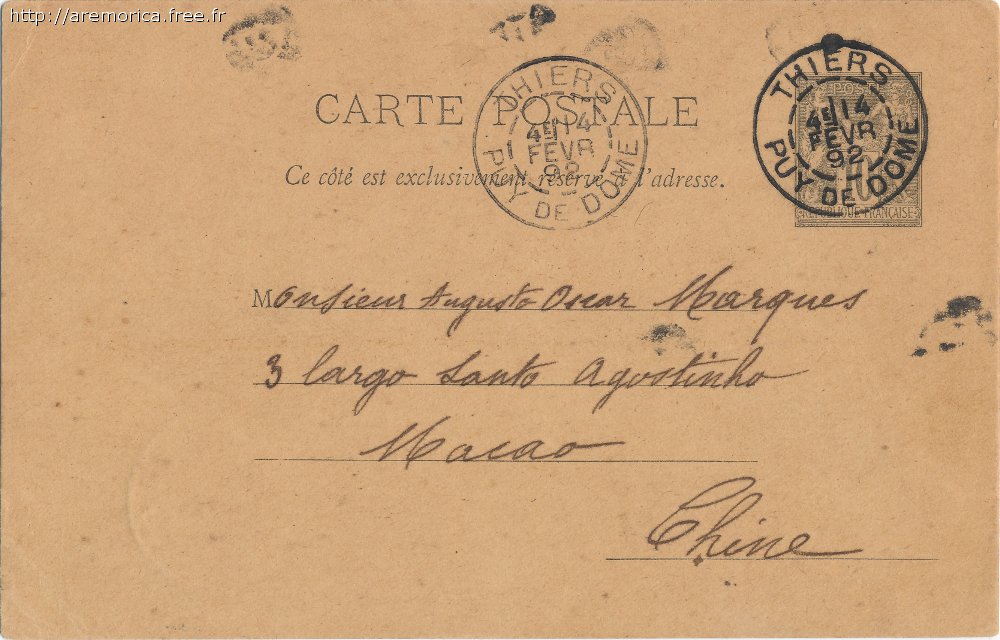 http://aremorica.free.fr
CARTE POSTALE
Ce côté est exclusivement réservé à l'adresse.
THIERS
4E 14
FEVR
92
PUY DE DOME
THIERS
4E 14
FEVR
92
PUY DE DOME
POSTES
10
REPUBLIQUE FRANÇAISE
Monsieur Augusto Oscar Marques
3 largo Santo Agostinho
Macao
Chine